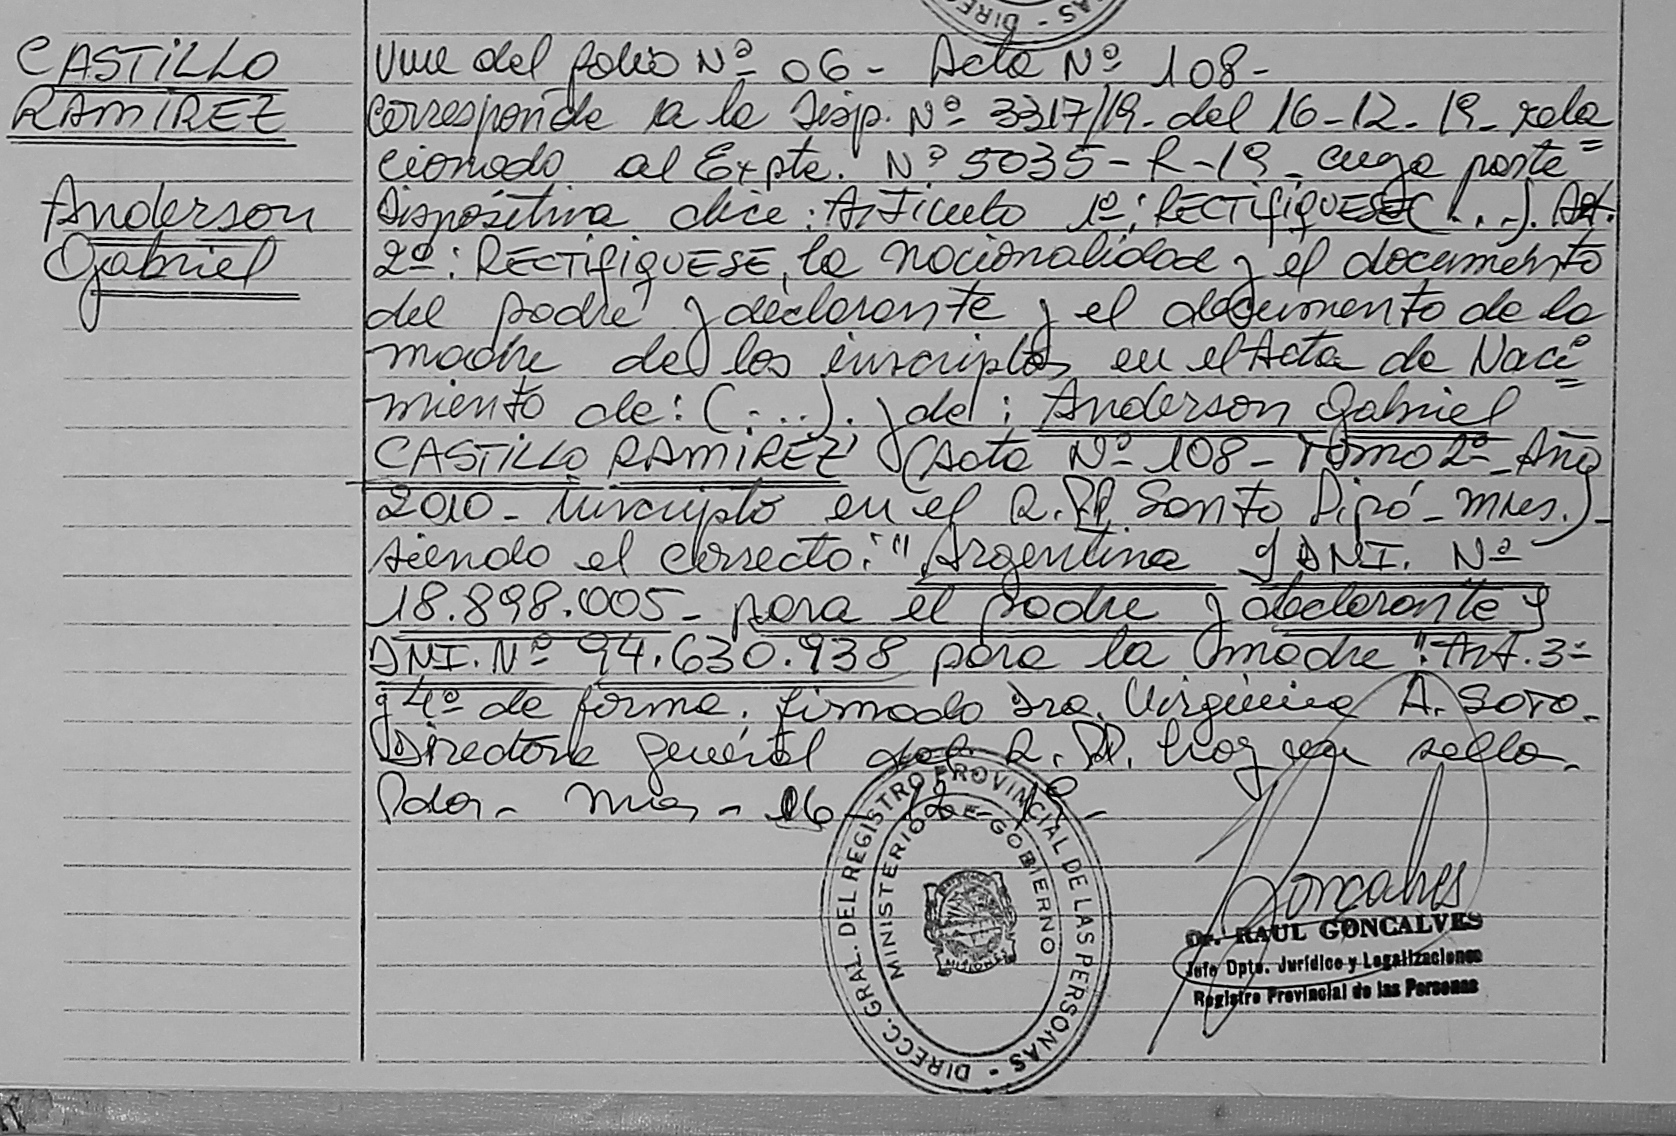 CASTiLLO
RAMiREZ
Anderson
Gabriel
DIREC
NAS -
Viene del folio Nº 06 - Acta Nº 108 -
Corresponde a la Disp. Nº 3317/19 - del 16-12-19 - rela
cionado al Expte. Nº 5035-R-19 - cuya parte
Dispositiva dice: Artículo 1º: RECTifiQUESE (...). Art.
2º: RECTifiQUESE, la nacionalidad y el documento
del padre y declarante y el documento de la
madre de los inscriptos en el Acta de Naci=
miento de: (...). y de: Anderson Gabriel
CASTiLLO RAMiREZ (Acta Nº 108 - Tomo 2º - Año
2010 - inscripto en el R.PP. Santo Pipó - Mnes.) -
siendo el correcto: "Argentina y DNI. Nº
18.898.005 - para el padre y declarante y
DNI. Nº 94.630.938 para la madre". Art. 3º
y 4º de forma. firmado Dra. Virginia A. Soto.
Directora general del R.PP. hay un sello.
Pdas - Mnes - 16 - 12 - 19 -
DIRECC. GRAL. DEL REGISTRO PROVINCIAL DE LAS PERSONAS -
MINISTERIO DE GOBIERNO
MISIONES
Goncalves
Dr. RAUL GONCALVES
Jefe Dpto. Jurídico y Legalizaciones
Registro Provincial de las Personas